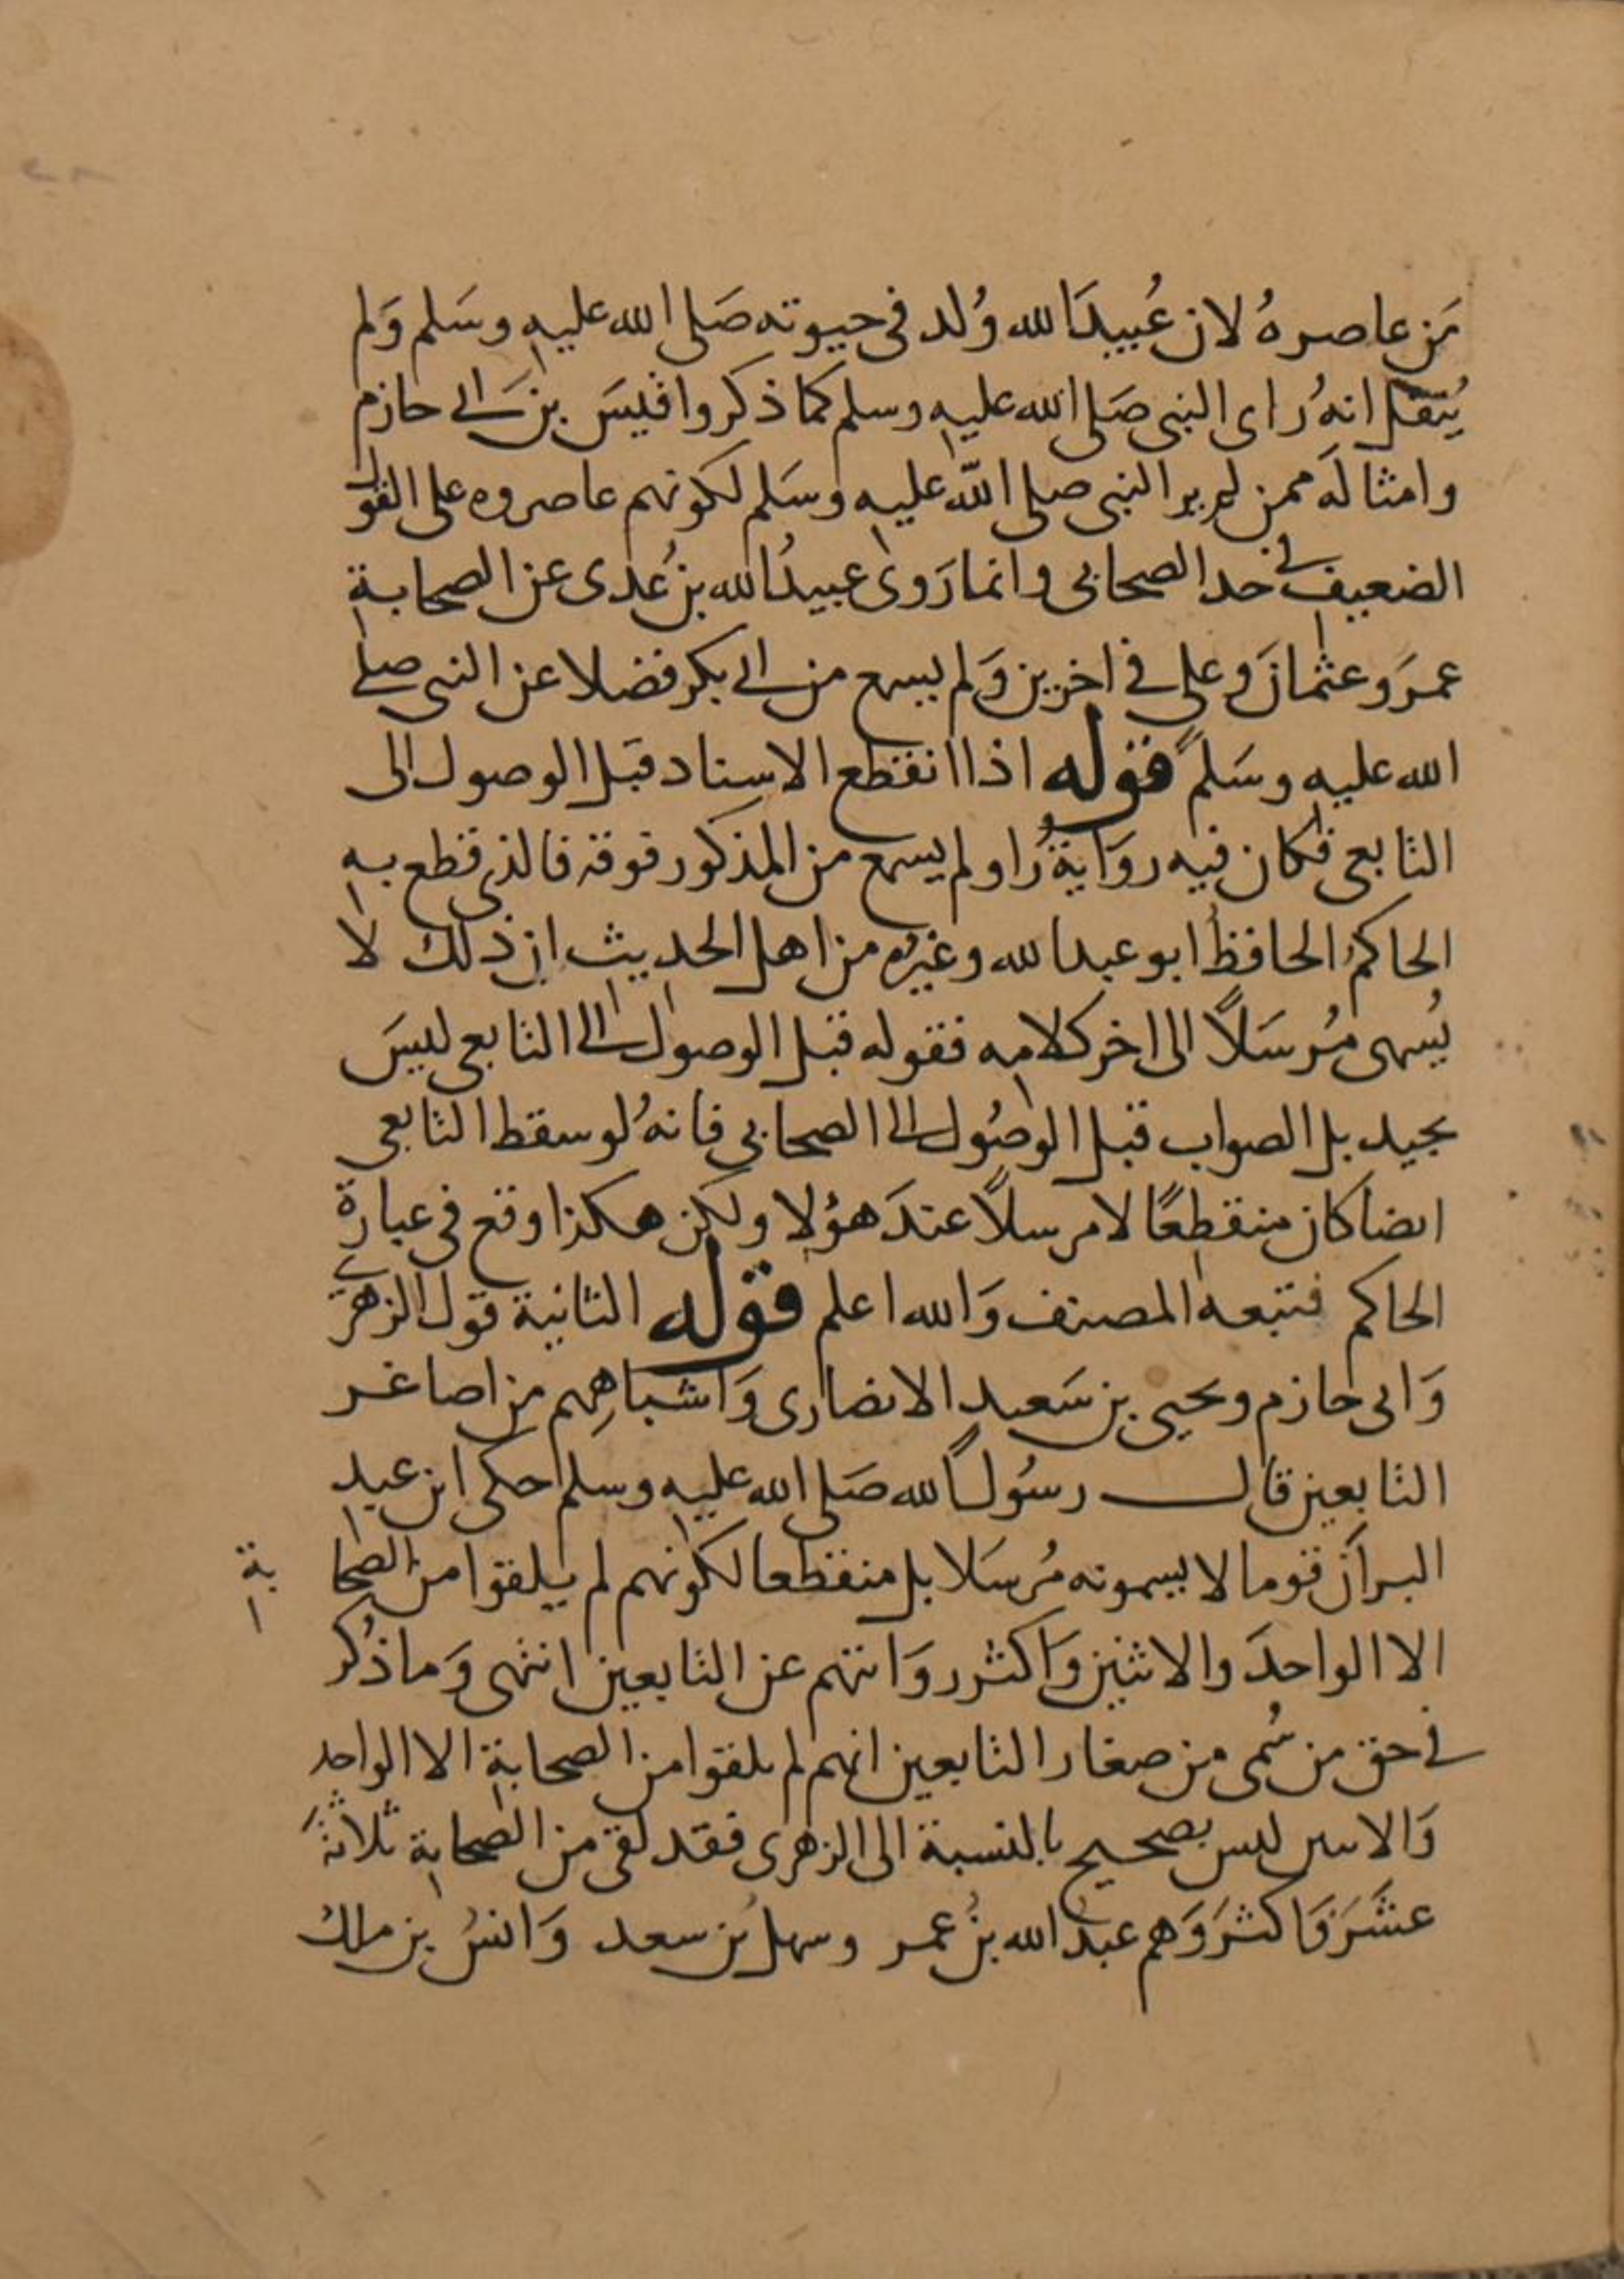 مَن عاصرهُ لان عُبيدَالله وُلد فى حيوته صَلى الله عليه وسَلم وَلم
يُنقل انهُ راى النبى صَلى الله عليه وسلم كما ذكروا قيسَ بن ابى حازم
وامثالَه ممن لم ير النبى صلى الله عليه وسَلم لكونهم عاصروه على القول
الضعيف فى حد الصحابى وانما رَوى عبيدُالله بن عُدى عن الصحابة
عمرَ وعثمانَ وعلى فى اخرين وَلم يسمع من ابى بكر فضلا عن النبى صلى
الله عليه وسَلم قوله اذا انقطع الاسناد قبَل الوصول الى
التابعى فكان فيه روَايةُ راو لم يسمع من المذكور فوقه فالذى قطع به
الحاكمُ الحافظُ ابو عبدالله وغيرُه من اهل الحديث ان ذلك لا
يُسمى مُرسَلاً الى اخر كلامه فقوله قبل الوصول الى التابعى ليسَ
بجيد بل الصواب قبل الوصُول الى الصحابى فانهُ لو سقط التابعى
ايضا كان منقطعًا لا مرسلاً عندَ هؤلا ولكن هكذا وقع فى عبارة
الحاكم فتبعه المصنف وَالله اعلم قوله الثانية قول الزهرى
وَابى حازم ويحيى بن سَعيد الانصارى وَاشباهِهم من اصاغر
التابعين قال رسُول الله صَلى الله عليه وسلم حكى ابن عبد
البر اَن قوما لا يسمونه مُرسَلا بل منقطعا لكونهم لم يلقوا من الصحابة
الا الواحدَ والاثنين وَاكثر روَايتهم عن التابعين انتهى وَما ذُكر
فى حق من سُمى من صغار التابعين انهم لم يلقوا من الصحابة الا الواحد
وَالاثنين ليس بصحيح بالنسبة الى الزهرى فقد لقى من الصحابة ثلاثةَ
عشَرَ فَاكثرَ وَهم عبدُالله بنُ عمر وسهل بن سعد وَانسُ بن مالك